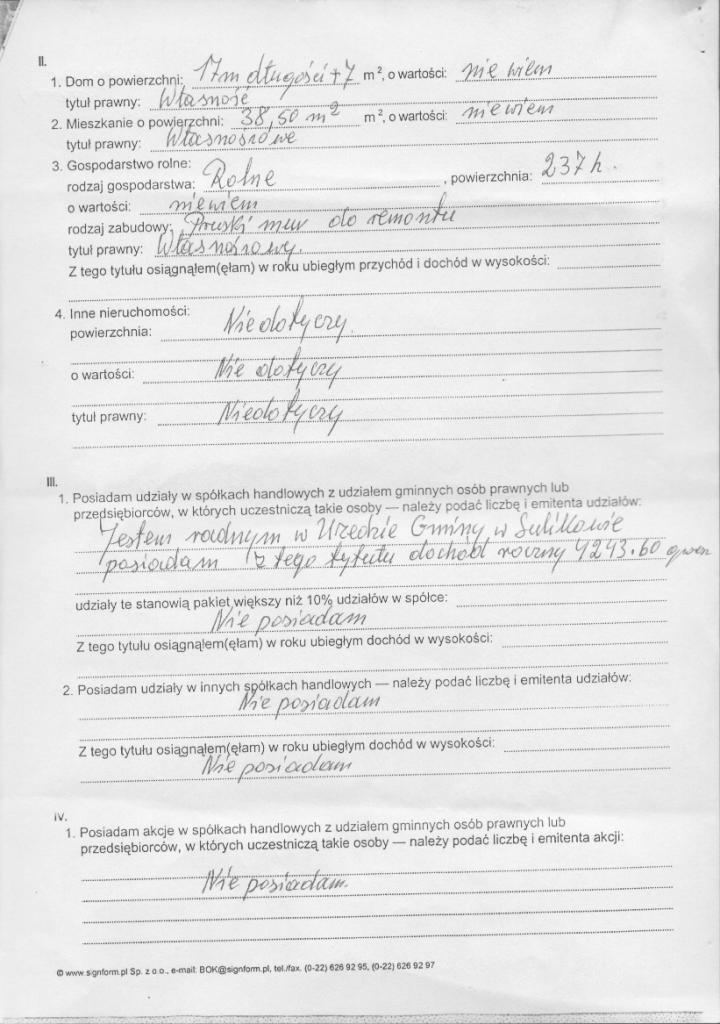 II.
1. Dom o powierzchni: 17m długości + 7 m², o wartości: nie wiem
tytuł prawny: Własność
2. Mieszkanie o powierzchni: 38,50 m² m², o wartości: niewiem
tytuł prawny: Własnośnowe
3. Gospodarstwo rolne:
rodzaj gospodarstwa: Rolne, powierzchnia: 237 h.
o wartości: niewiem
rodzaj zabudowy: Pruski mur do remontu
tytuł prawny: Własnośnowy.
Z tego tytułu osiągnąłem(ęłam) w roku ubiegłym przychód i dochód w wysokości:
4. Inne nieruchomości:
powierzchnia: Niedotyczy.
o wartości: Nie dotyczy
tytuł prawny: Niedotyczy
III.
1. Posiadam udziały w spółkach handlowych z udziałem gminnych osób prawnych lub
przedsiębiorców, w których uczestniczą takie osoby — należy podać liczbę i emitenta udziałów:
Jestem radnym w Urzędzie Gminy w Sulikowie
posiadam z tego tytułu dochód roczny 4243.60
udziały te stanowią pakiet większy niż 10% udziałów w spółce:
Nie posiadam
Z tego tytułu osiągnąłem(ęłam) w roku ubiegłym dochód w wysokości:
2. Posiadam udziały w innych spółkach handlowych — należy podać liczbę i emitenta udziałów:
Nie posiadam
Z tego tytułu osiągnąłem(ęłam) w roku ubiegłym dochód w wysokości:
Nie posiadam
IV.
1. Posiadam akcje w spółkach handlowych z udziałem gminnych osób prawnych lub
przedsiębiorców, w których uczestniczą takie osoby — należy podać liczbę i emitenta akcji:
Nie posiadam.
© www.signform.pl Sp. z o.o., e-mail: BOK@signform.pl, tel./fax. (0-22) 626 92 95, (0-22) 626 92 97